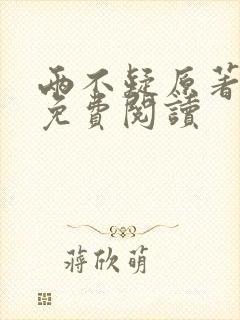 兩不疑原著
免費閱讀
蔣欣萌